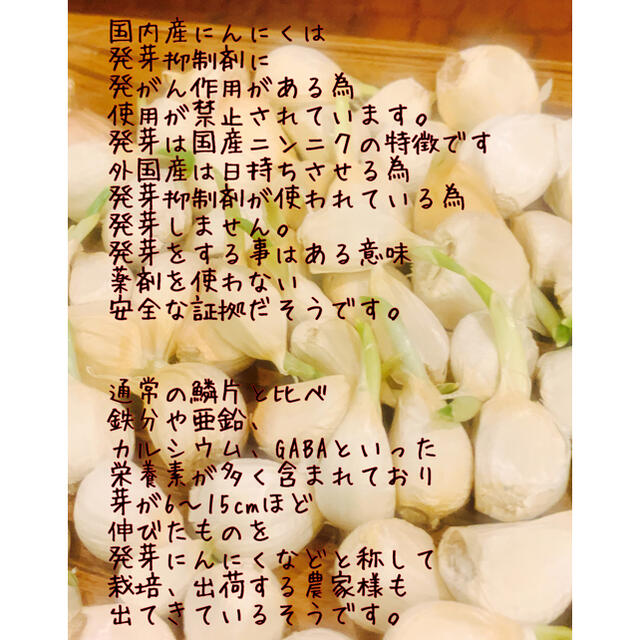 国内産にんにくは
発芽抑制剤に
発がん作用がある為
使用が禁止されています。
発芽は国産ニンニクの特徴です
外国産は日持ちさせる為
発芽抑制剤が使われている為
発芽しません。
発芽をする事はある意味
薬剤を使わない
安全な証拠だそうです。
通常の鱗片と比べ
鉄分や亜鉛、
カルシウム、GABAといった
栄養素が多く含まれており
芽が6〜15cmほど
伸びたものを
発芽にんにくなどと称して
栽培、出荷する農家様も
出てきているそうです。